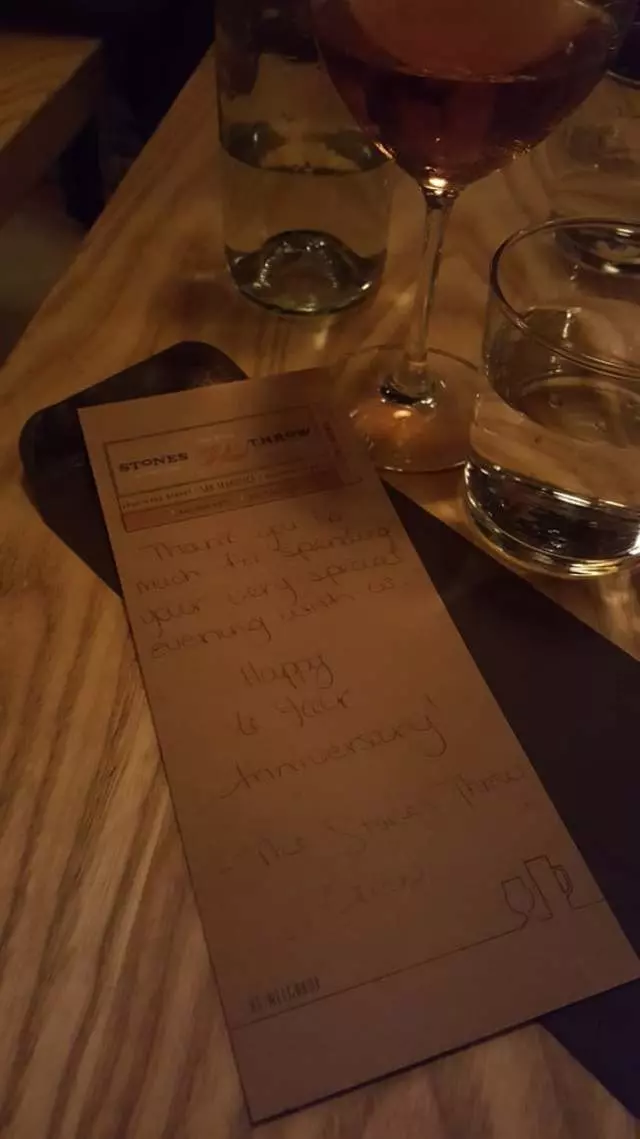 STONES THROW
SAN FRANCISCO
Thank you so
much for spending
your very special
evening with us.
Happy
6 Year
Anniversary!
- The Stones Throw
Crew
HI NEIGHBOR